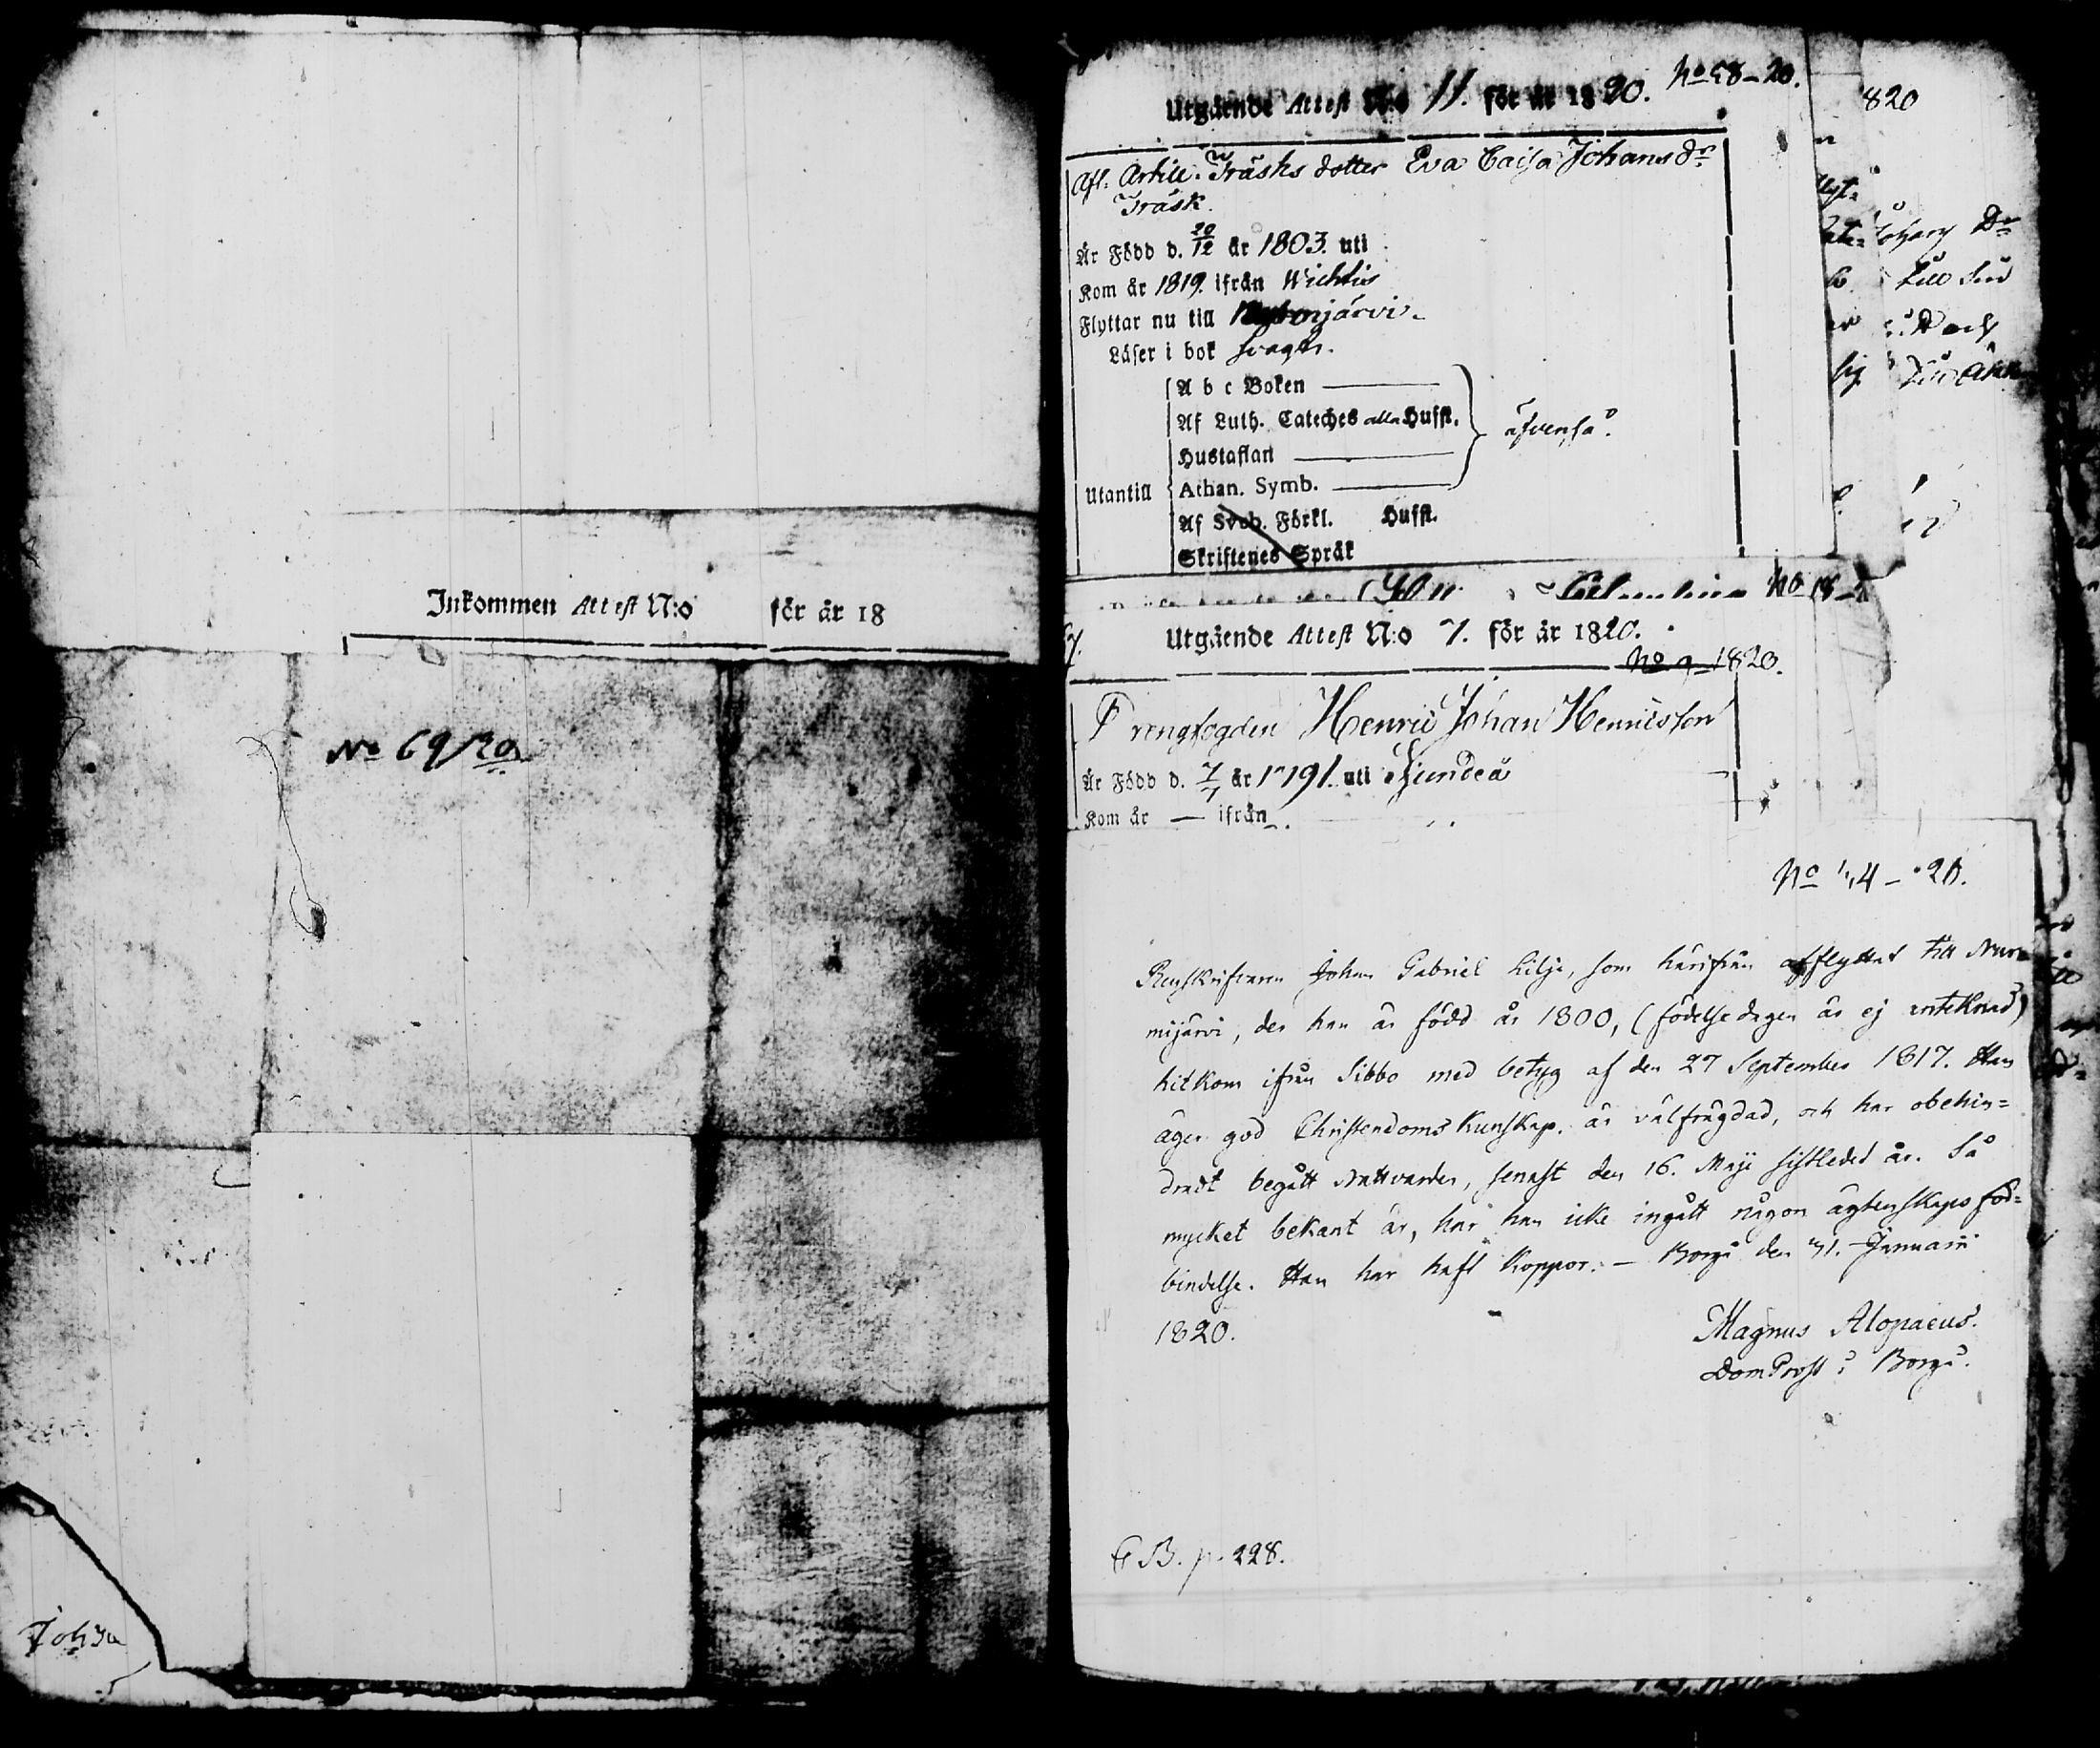 Inkommen Attest N:o för år 18
No 69/20
Joh
Utgående Attest N:o 11. för år 1820. No 58-20.
Afl. Artill. Träsks dotter Eva Caisa Johans Dr
Träsk.
Är Född d. 20/12 år 1803. uti
Kom år 1819. ifrån Wichtis
Flyttar nu till Nurmijärvi.
Läser i bok svagt.
A b c Boken
Af Luth. Cateches alla Hufst.
Hustaflan
äfvenså.
Utantill Athan. Symb.
Af Sveb. Förkl. Hufst.
Skriftenes Språk
Utgående Attest N:o 7. för år 1820.
1820.
Drengfogden Henric Johan Henricsson
Är Född d. 7/7 år 1791. uti Sjundeå
Kom år — ifrån
820
No 44-20.
Renskrifvaren Johan Gabriel Lilja, som härifrån afflyttat till Nur=
mijärvi, der han är född år 1800, (födelsedagen är ej anteknad)
hitkom ifrån Sibbo med betyg af den 27 September 1817. Han
äger god Christendoms kunskap, är välfrägdad, och har obehin=
dradt begått Nattvarden, senast den 16. Maji sistledet år. Så
mycket bekant är, har han icke ingått någon ägtenskaps för=
bindelse. Han har haft koppor. — Borgå den 31. Januarii
1820.
Magnus Alopaeus.
DomProst i Borgå.
C B. p. 228.